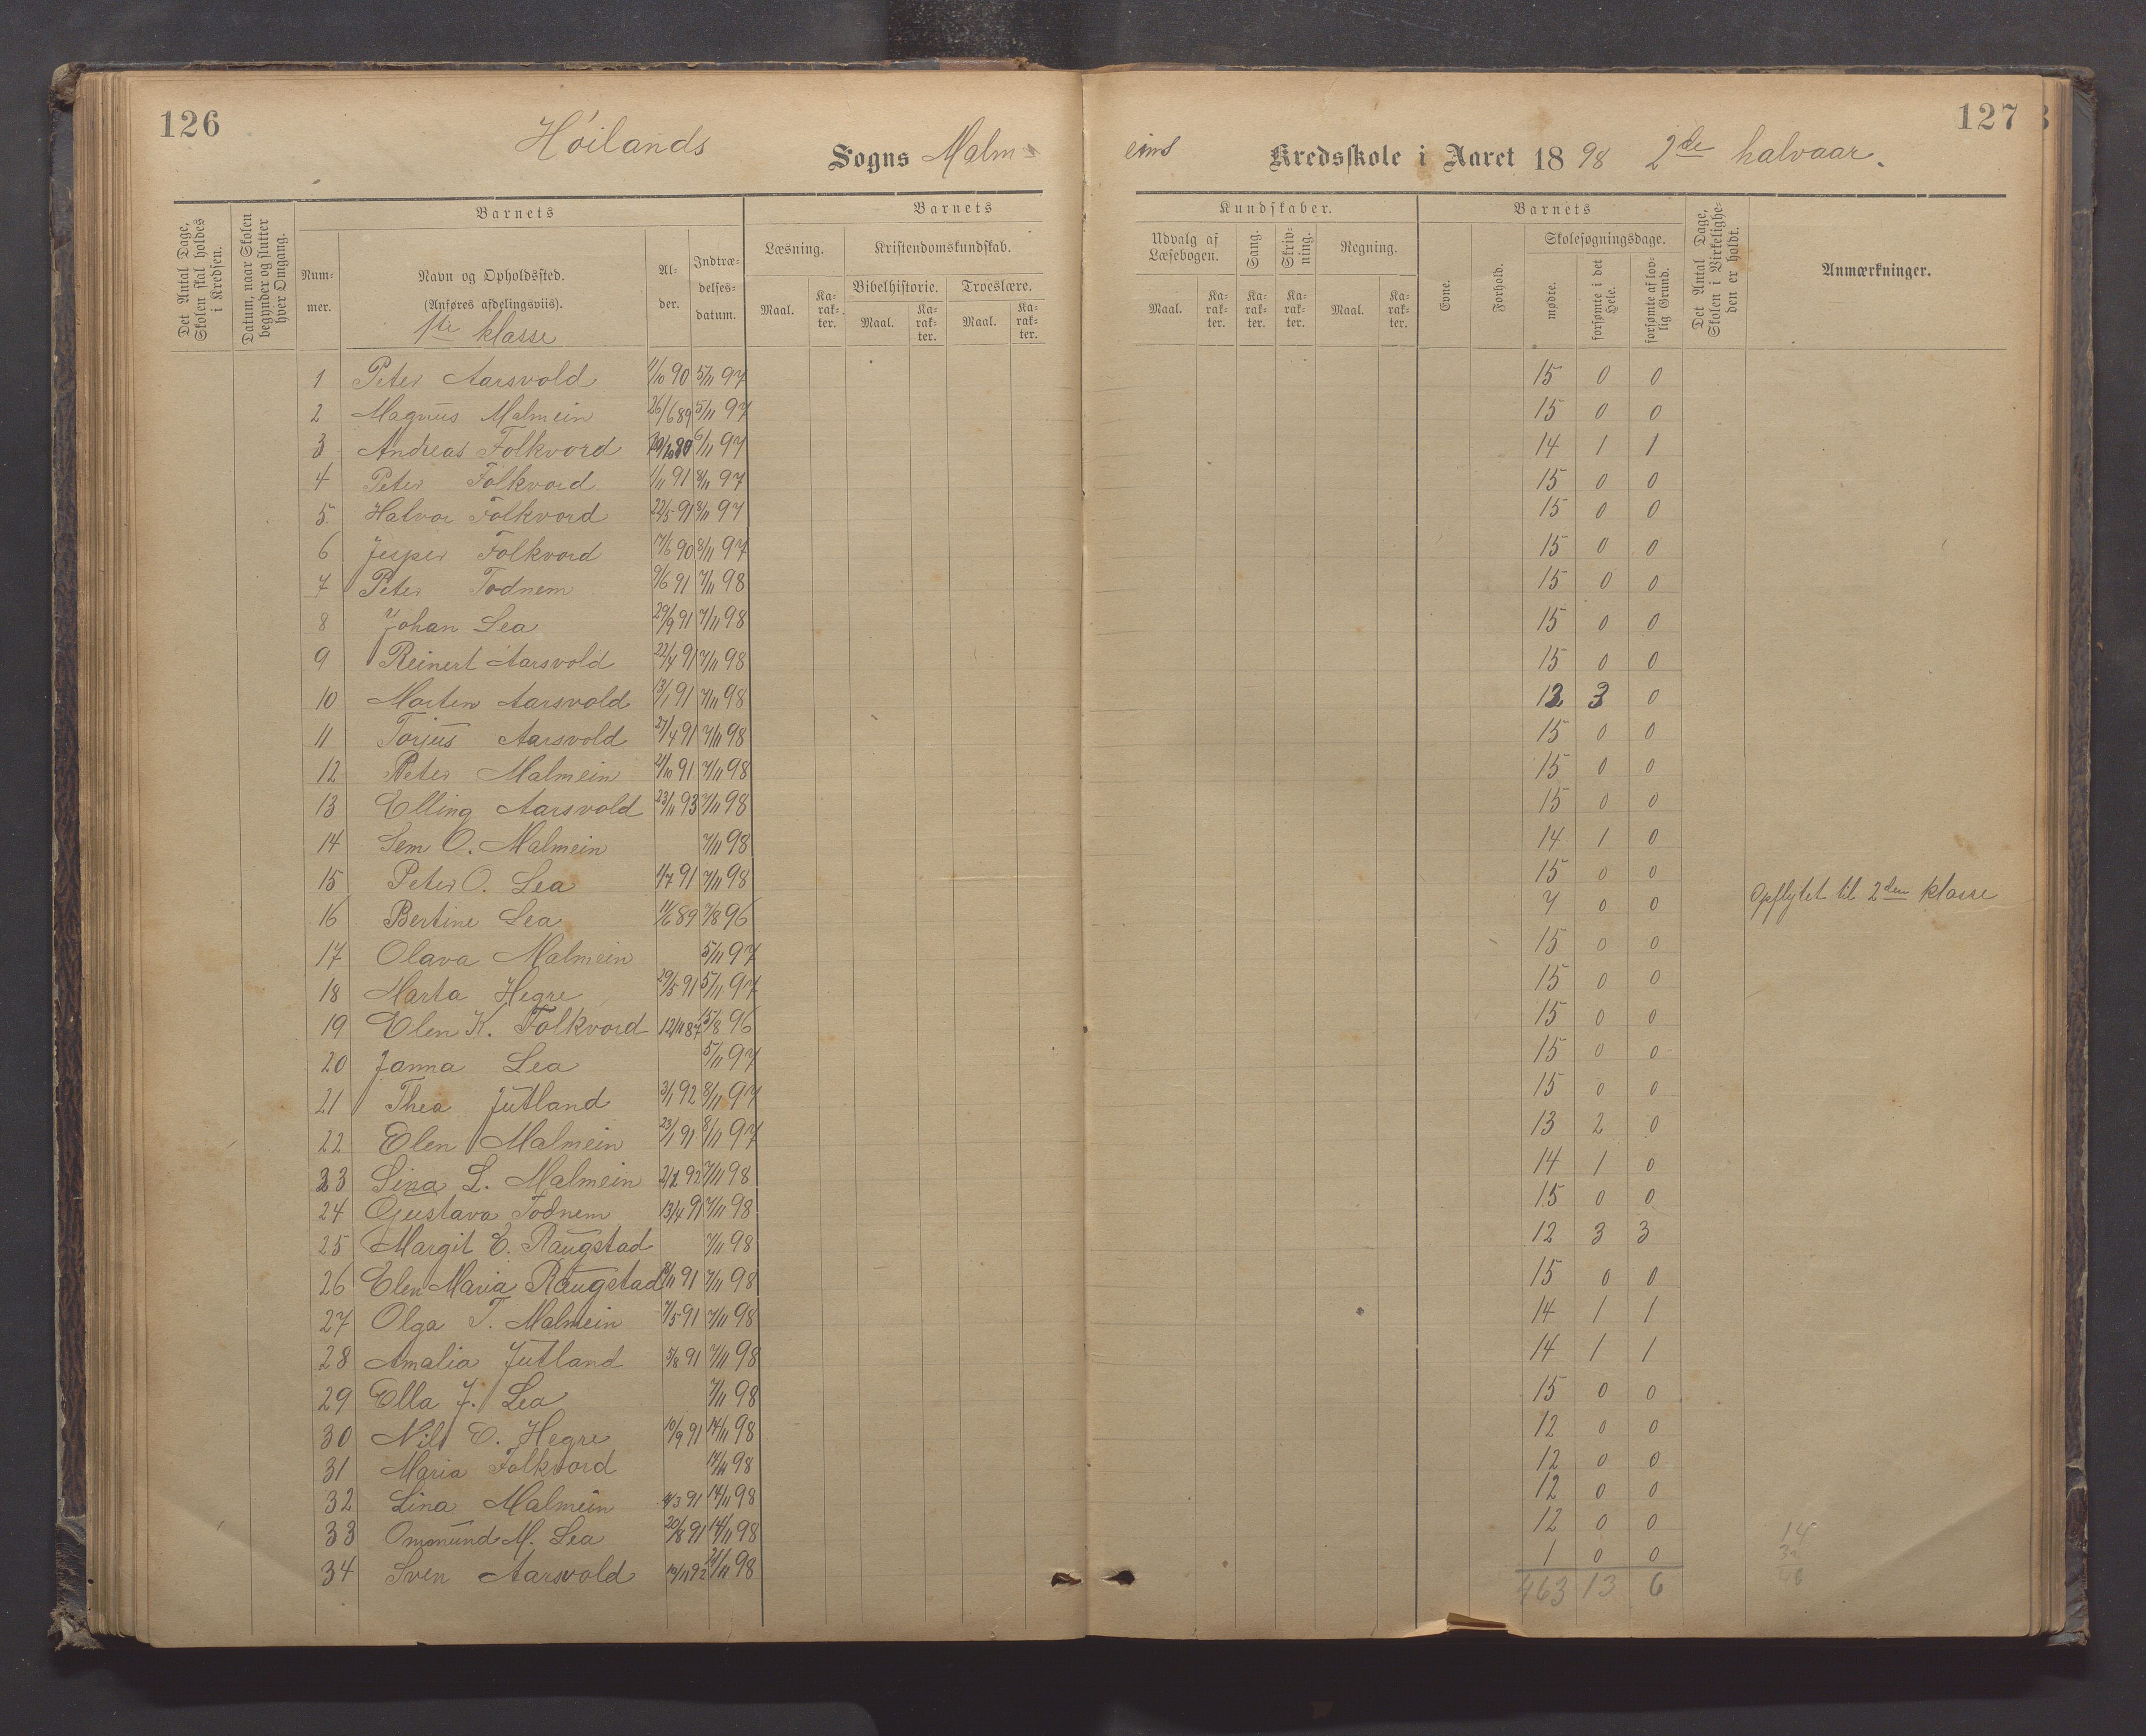 126
127
Høilands Sogns Malm- eims Kredsskole i Aaret 1898 2de halvaar.
Det Antal Dage, Skolen skal holdes i Kredsen.
Datum, naar Skolen begynder og slutter hver Omgang.
Barnets
Nummer.
Navn og Opholdssted.
(Anføres afdelingsviis).
1ste klasse
Alder.
Indtrædelsesdatum.
Barnets
Læsning.
Maal.
Karakter.
Kristendomskundskab.
Bibelhistorie.
Maal.
Karakter.
Troeslære.
Maal.
Karakter.
Kundskaber.
Udvalg af Læsebogen.
Maal.
Karakter.
Sang.
Karakter.
Skrivning.
Karakter.
Regning.
Maal.
Karakter.
Barnets
Evne.
Forhold.
Skolesøgningsdage.
mødte.
forsømte i det Hele.
forsømte af lovlig Grund.
Det Antal Dage, Skolen i Virkeligheden er holdt.
Anmærkninger.
1 Peter Aarsvold 11/10 90 5/11 97 15 0 0
2 Magnus Malmein 26/6 89 5/11 97 15 0 0
3 Andreas Folkvord 6/11 97 14 1 1
4 Peter Folkvord 1/1 91 8/11 97 15 0 0
5 Halvor Folkvord 22/5 91 8/11 97 15 0 0
6 Jesper Folkvord 17/6 90 8/11 97 15 0 0
7 Peter Todnem 9/6 91 7/11 98 15 0 0
8 Johan Lea 29/9 91 7/11 98 15 0 0
9 Reinert Aarsvold 22/4 91 7/11 98 15 0 0
10 Morten Aarsvold 13/1 91 7/11 98 12 3 0
11 Torjus Aarsvold 27/4 91 7/11 98 15 0 0
12 Peter Malmein 21/10 91 7/11 98 15 0 0
13 Elling Aarsvold 23/11 93 7/11 98 15 0 0
14 Sem O. Malmein 7/11 98 14 1 0
15 Peter O. Lea 4/7 91 7/11 98 15 0 0
16 Bertine Lea 11/6 89 7/8 96 7 0 0 Opflytet til 2den klasse
17 Olava Malmein 5/11 97 15 0 0
18 Marta Hegre 29/5 91 5/11 97 15 0 0
19 Elen K. Folkvord 12/11 87 15/8 96 15 0 0
20 Janna Lea 5/11 97 15 0 0
21 Thea Jutland 3/1 92 8/11 97 15 0 0
22 Elen Malmein 23/1 91 8/11 97 13 2 0
23 Sina L. Malmein 2/2 92 7/11 98 14 1 0
24 Gustava Todnem 13/4 91 7/11 98 15 0 0
25 Margit E. Raugstad 7/11 98 12 3 3
26 Elen Maria Raugstad 8/11 91 7/11 98 15 0 0
27 Olga T. Malmein 7/5 91 7/11 98 14 1 1
28 Amalia Jutland 5/8 91 7/11 98 14 1 1
29 Ella J. Lea 7/11 98 15 0 0
30 Nils E. Hegre 10/9 91 14/11 98 12 0 0
31 Maria Folkvord 14/11 98 12 0 0
32 Lina Malmein 4/3 91 14/11 98 12 0 0
33 Ommund M. Lea 20/8 91 14/11 98 12 0 0
34 Sven Aarsvold 12/11 92 21/11 98 1 0 0
463 13 6
14